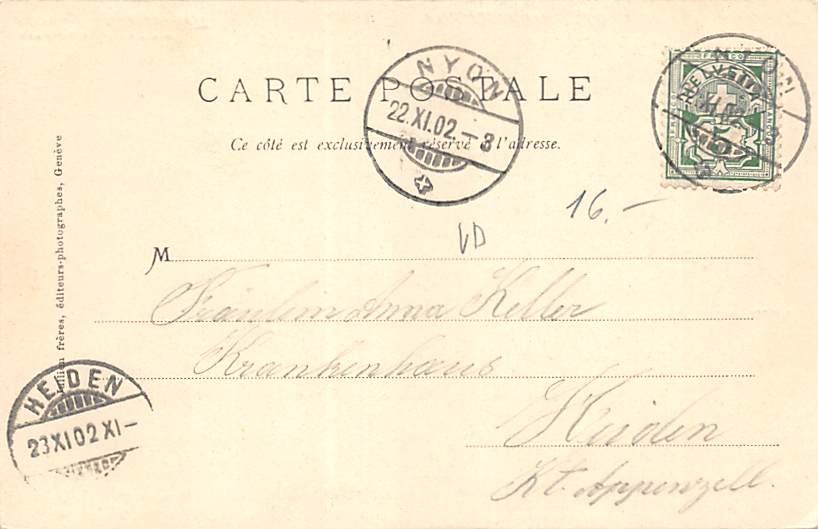 CARTE POSTALE
Ce côté est exclusivement réservé à l'adresse.
NYON
22.XI.02.-8
NYON
HELVETIA
XI.02
FRANCO
16.-
VD
M
Fräulein Anna Keller
Krankenhaus
Heiden
Kt. Appenzell.
Jullien frères, éditeurs-photographes, Genève
HEIDEN
23XI02XI-